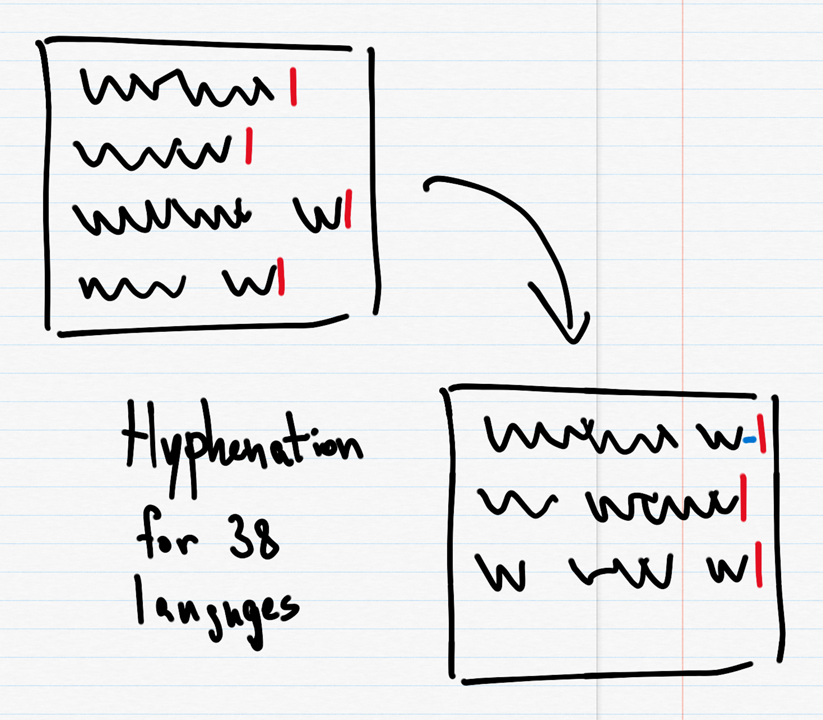 Hyphenation
for 38
languges